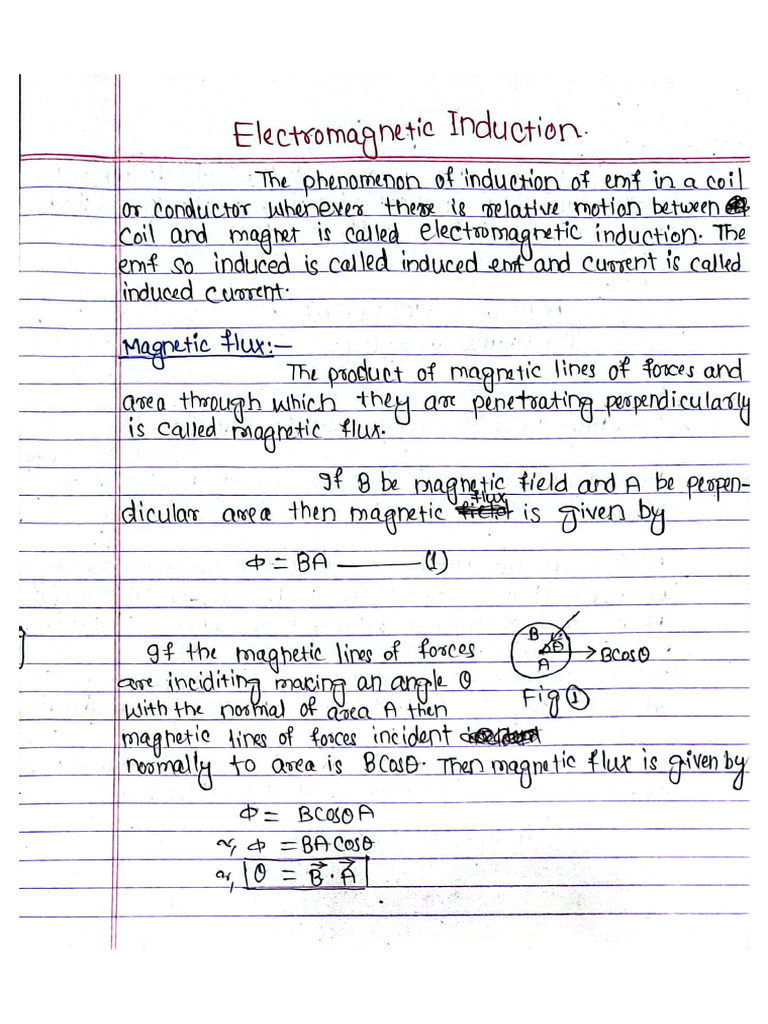 Electromagnetic Induction.
The phenomenon of induction of emf in a coil
or conductor whenever there is relative motion between
coil and magnet is called electromagnetic induction. The
emf so induced is called induced emf and current is called
induced current.
Magnetic flux:-
The product of magnetic lines of forces and
area through which they are penetrating perpendicularly
is called magnetic flux.
If B be magnetic field and A be perpen-
flux
dicular area then magnetic field is given by
Φ = BA ——— (1)
If the magnetic lines of forces
are inciditing making an angle θ
with the normal of area A then
magnetic lines of forces incident
normally to area is Bcosθ. Then magnetic flux is given by
B
θ
A
Bcosθ
Fig ①
Φ = BcosθA
or, Φ = BAcosθ
or, θ = B⃗·A⃗